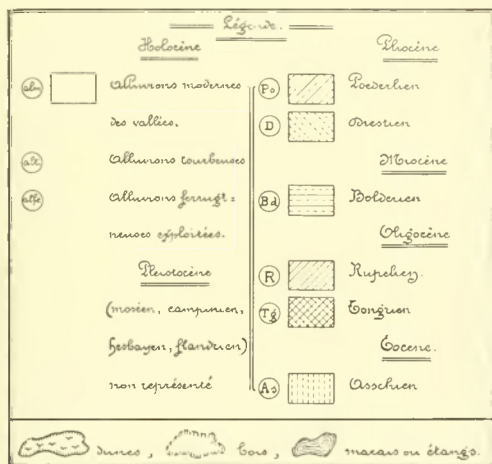 Légende.
Holocène
alm Alluvions modernes
des vallées.
alt Alluvions tourbeuses
alfe Alluvions ferrugi=
neuses exploitées.
Pleistocène
(moséen, campinien,
hesbayen, flandrien)
non représenté
Pliocène
Po Poederlien
D Diestien
Miocène
Bd Bolderien
Oligocène
R Rupelien.
Tg Tongrien
Éocène.
As Asschien
dunes, bois, marais ou étangs.